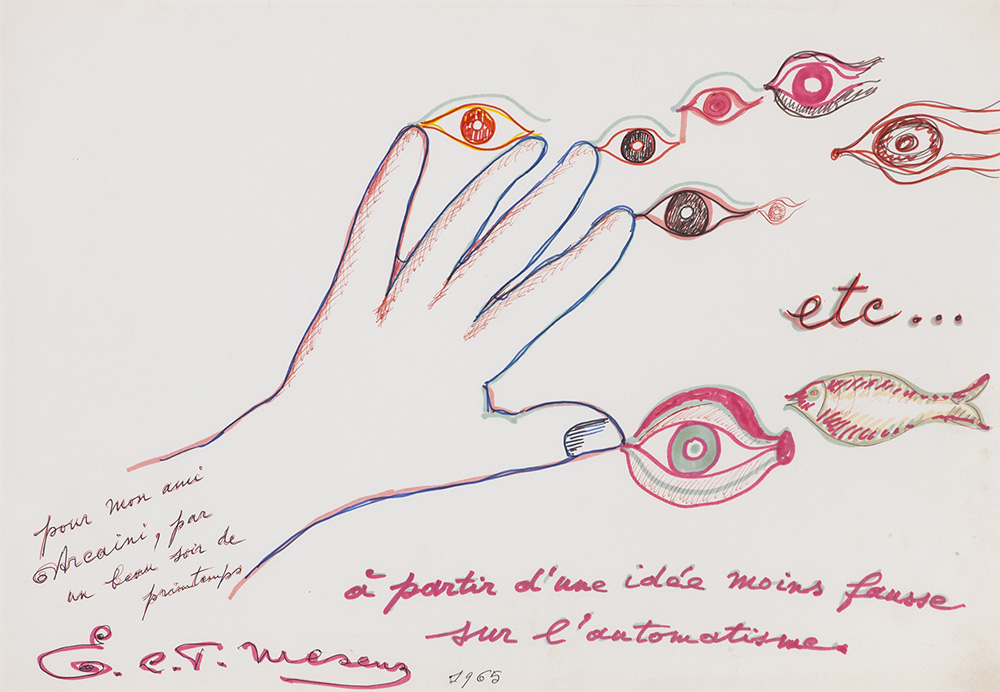 etc...
pour mon ami
Arcaini, par
un beau soir de
printemps
à partir d'une idée moins fausse
sur l'automatisme.
E. L. T. Mesens
1965